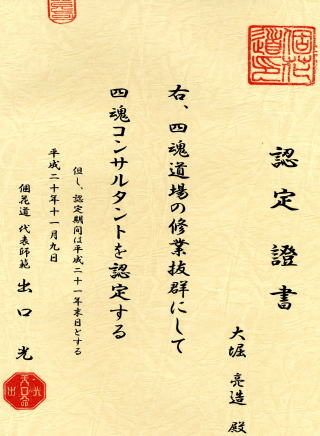 認定證書
大堀 亮造 殿
右、四魂道場の修業抜群にして
四魂コンサルタントを認定する
但し、認定期間は平成二十一年末日とする
平成二十年十一月九日
個花道 代表師範 出口 光
個花
道印